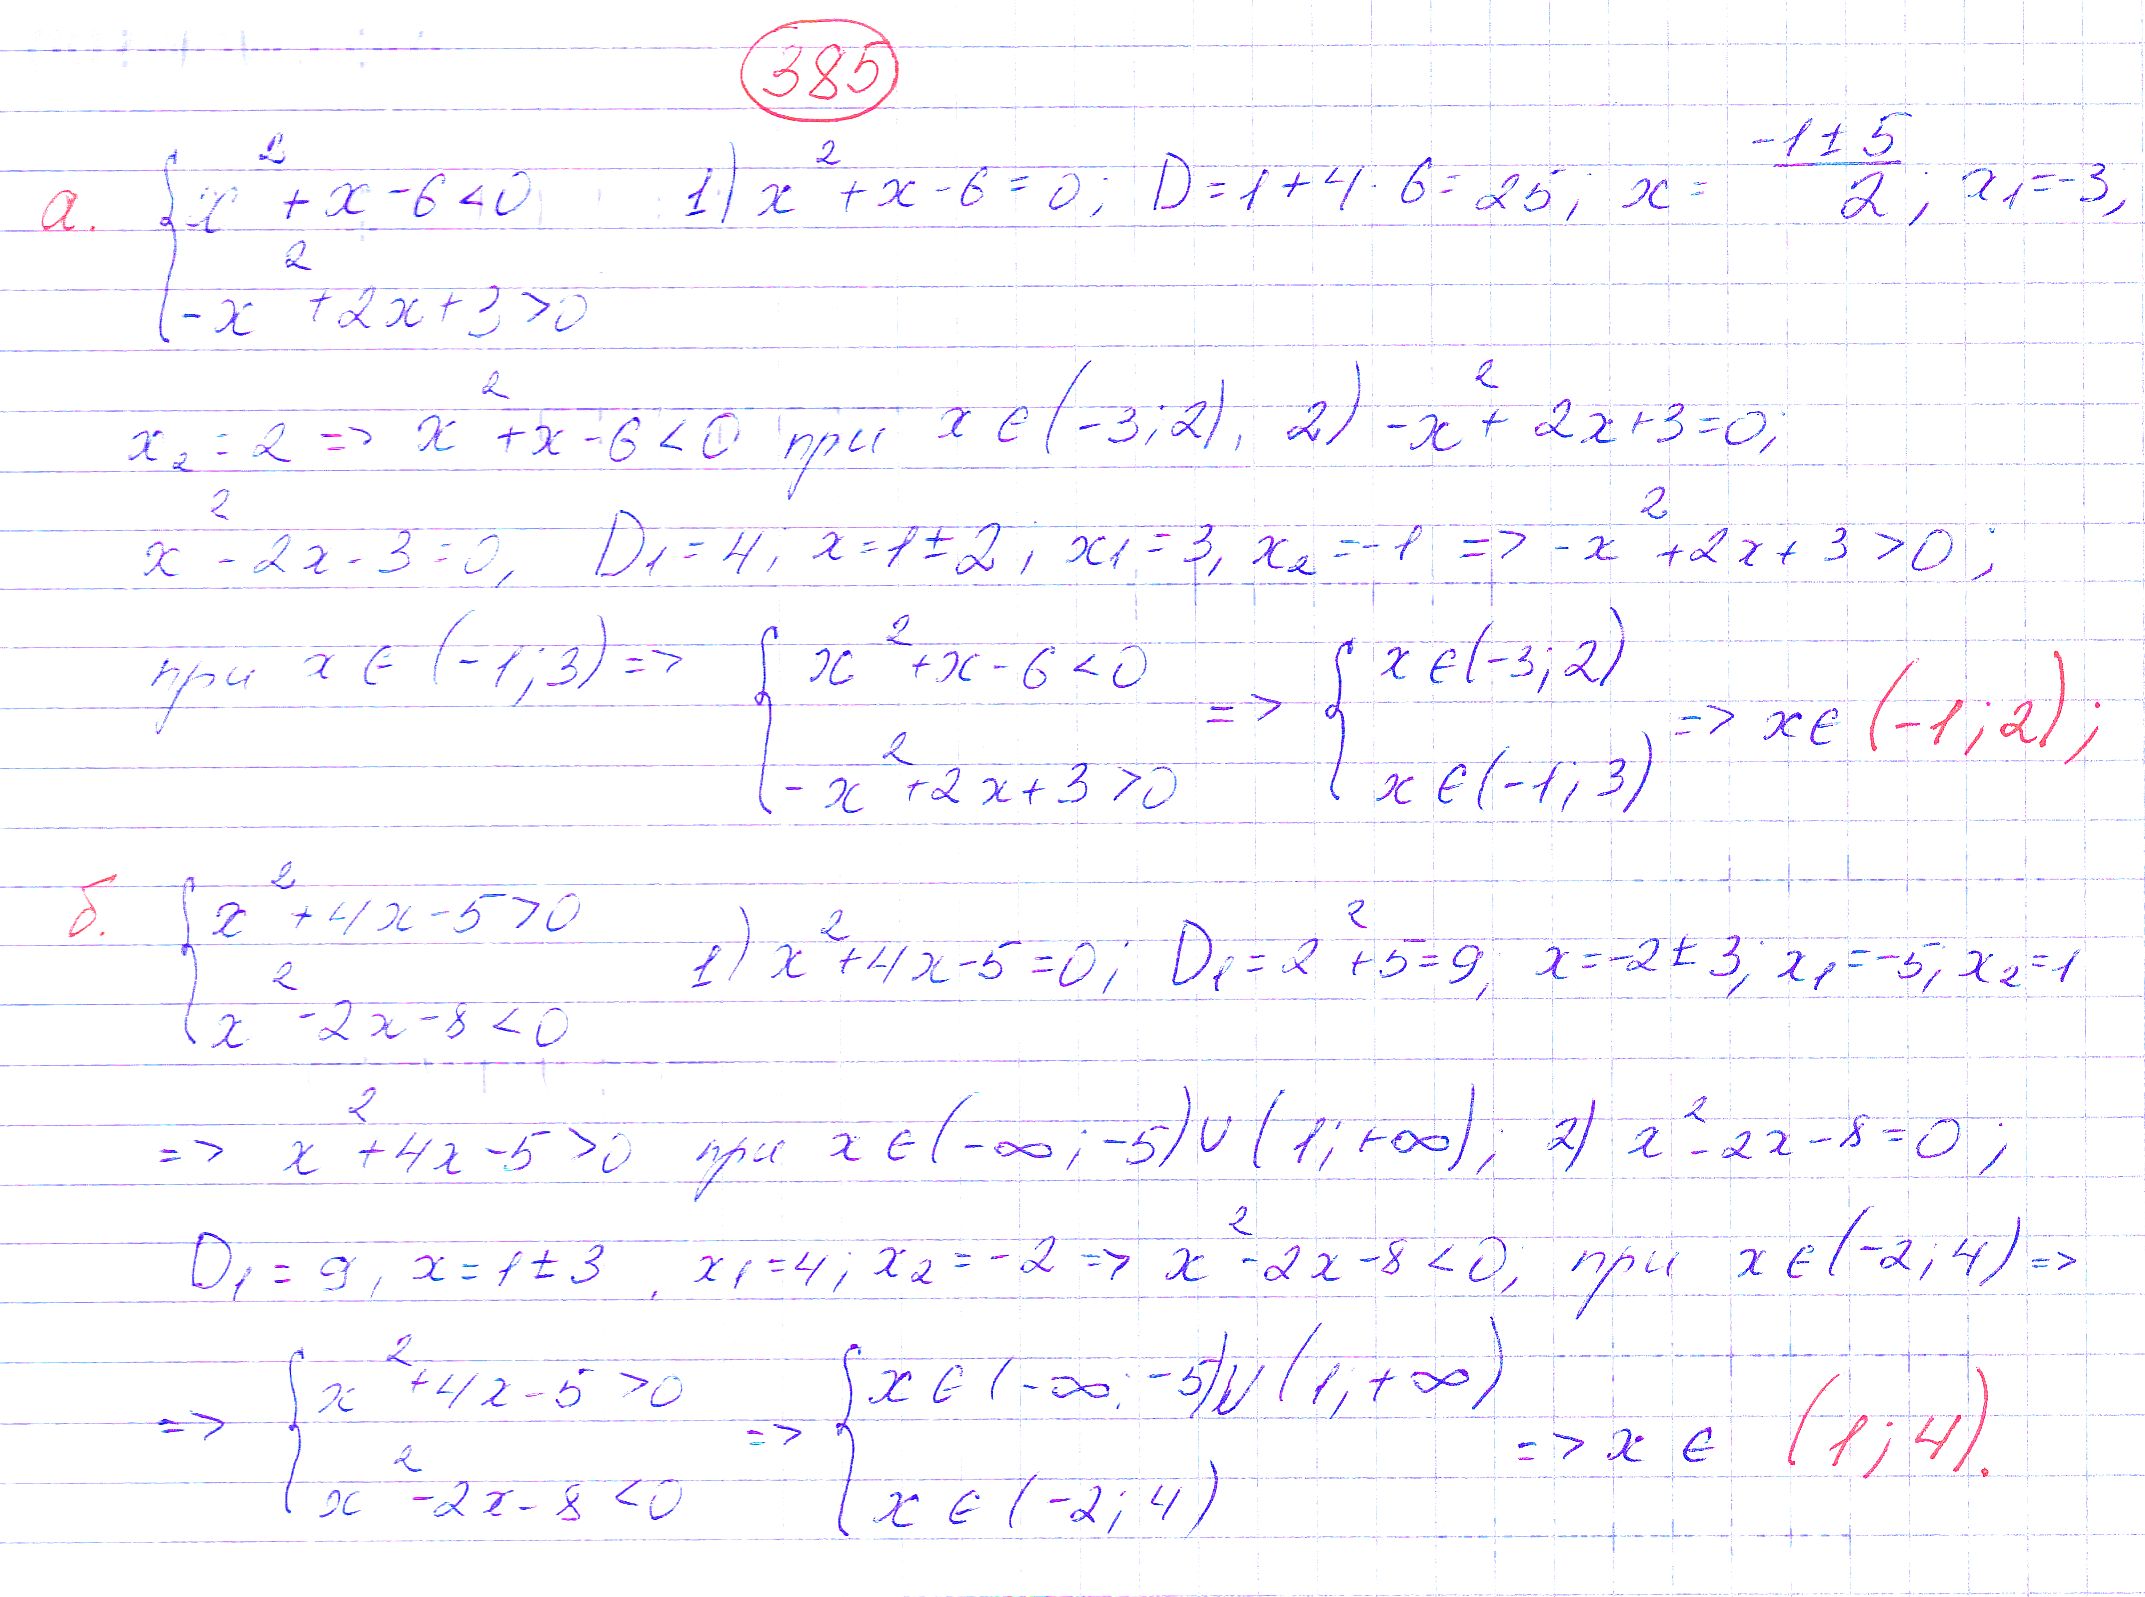 385
а. { x² + x - 6 < 0   1) x² + x - 6 = 0; D = 1 + 4 · 6 = 25; x = (-1 ± 5)/2; x₁ = -3,
-x² + 2x + 3 > 0
x₂ = 2 => x² + x - 6 < 0 при x ∈ (-3; 2), 2) -x² + 2x + 3 = 0;
x² - 2x - 3 = 0, D₁ = 4, x = 1 ± 2, x₁ = 3, x₂ = -1 => -x² + 2x + 3 > 0;
при x ∈ (-1; 3) => { x² + x - 6 < 0 => { x ∈ (-3; 2) => x ∈ (-1; 2);
-x² + 2x + 3 > 0   x ∈ (-1; 3)
б. { x² + 4x - 5 > 0   1) x² + 4x - 5 = 0; D₁ = 2² + 5 = 9; x = -2 ± 3; x₁ = -5, x₂ = 1
x² - 2x - 8 < 0
=> x² + 4x - 5 > 0 при x ∈ (-∞; -5) ∪ (1; +∞); 2) x² - 2x - 8 = 0;
D₁ = 9, x = 1 ± 3, x₁ = 4; x₂ = -2 => x² - 2x - 8 < 0, при x ∈ (-2; 4) =>
=> { x² + 4x - 5 > 0 => { x ∈ (-∞; -5) ∪ (1; +∞) => x ∈ (1; 4).
x² - 2x - 8 < 0   x ∈ (-2; 4)